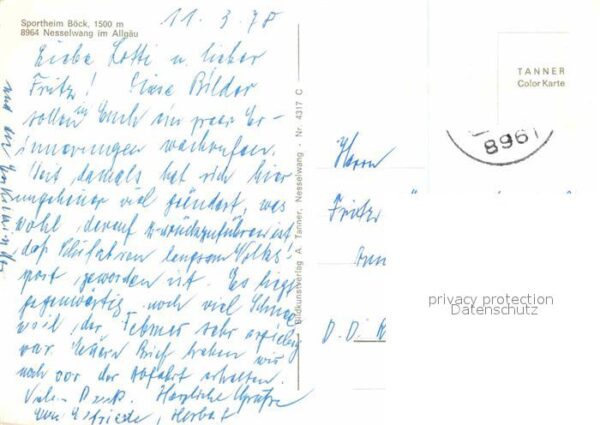 Sportheim Böck, 1500 m
8964 Nesselwang im Allgäu
11. 3. 78
Liebe Lotti u. lieber
Fritz! Diese Bilder
sollen in Euch ein paar Er-
innerungen wachrufen.
Seit damals hat sich hier
ungeheuer viel geändert, was
wohl darauf zurückzuführen ist,
daß Skifahren langsam Volks-
sport geworden ist. Es liegt
gegenwärtig noch viel Schnee
weil der Februar sehr ergiebig
war. Euern Brief haben wir
noch vor der Abfahrt erhalten.
Vielen Dank. Herzliche Grüße
Eure Elfriede, Herbert
und die
Bildkunstverlag A. Tanner, Nesselwang - Nr. 4317 C
TANNER
Color Karte
8961
Herrn
Fritz
D.D.R
privacy protection
Datenschutz